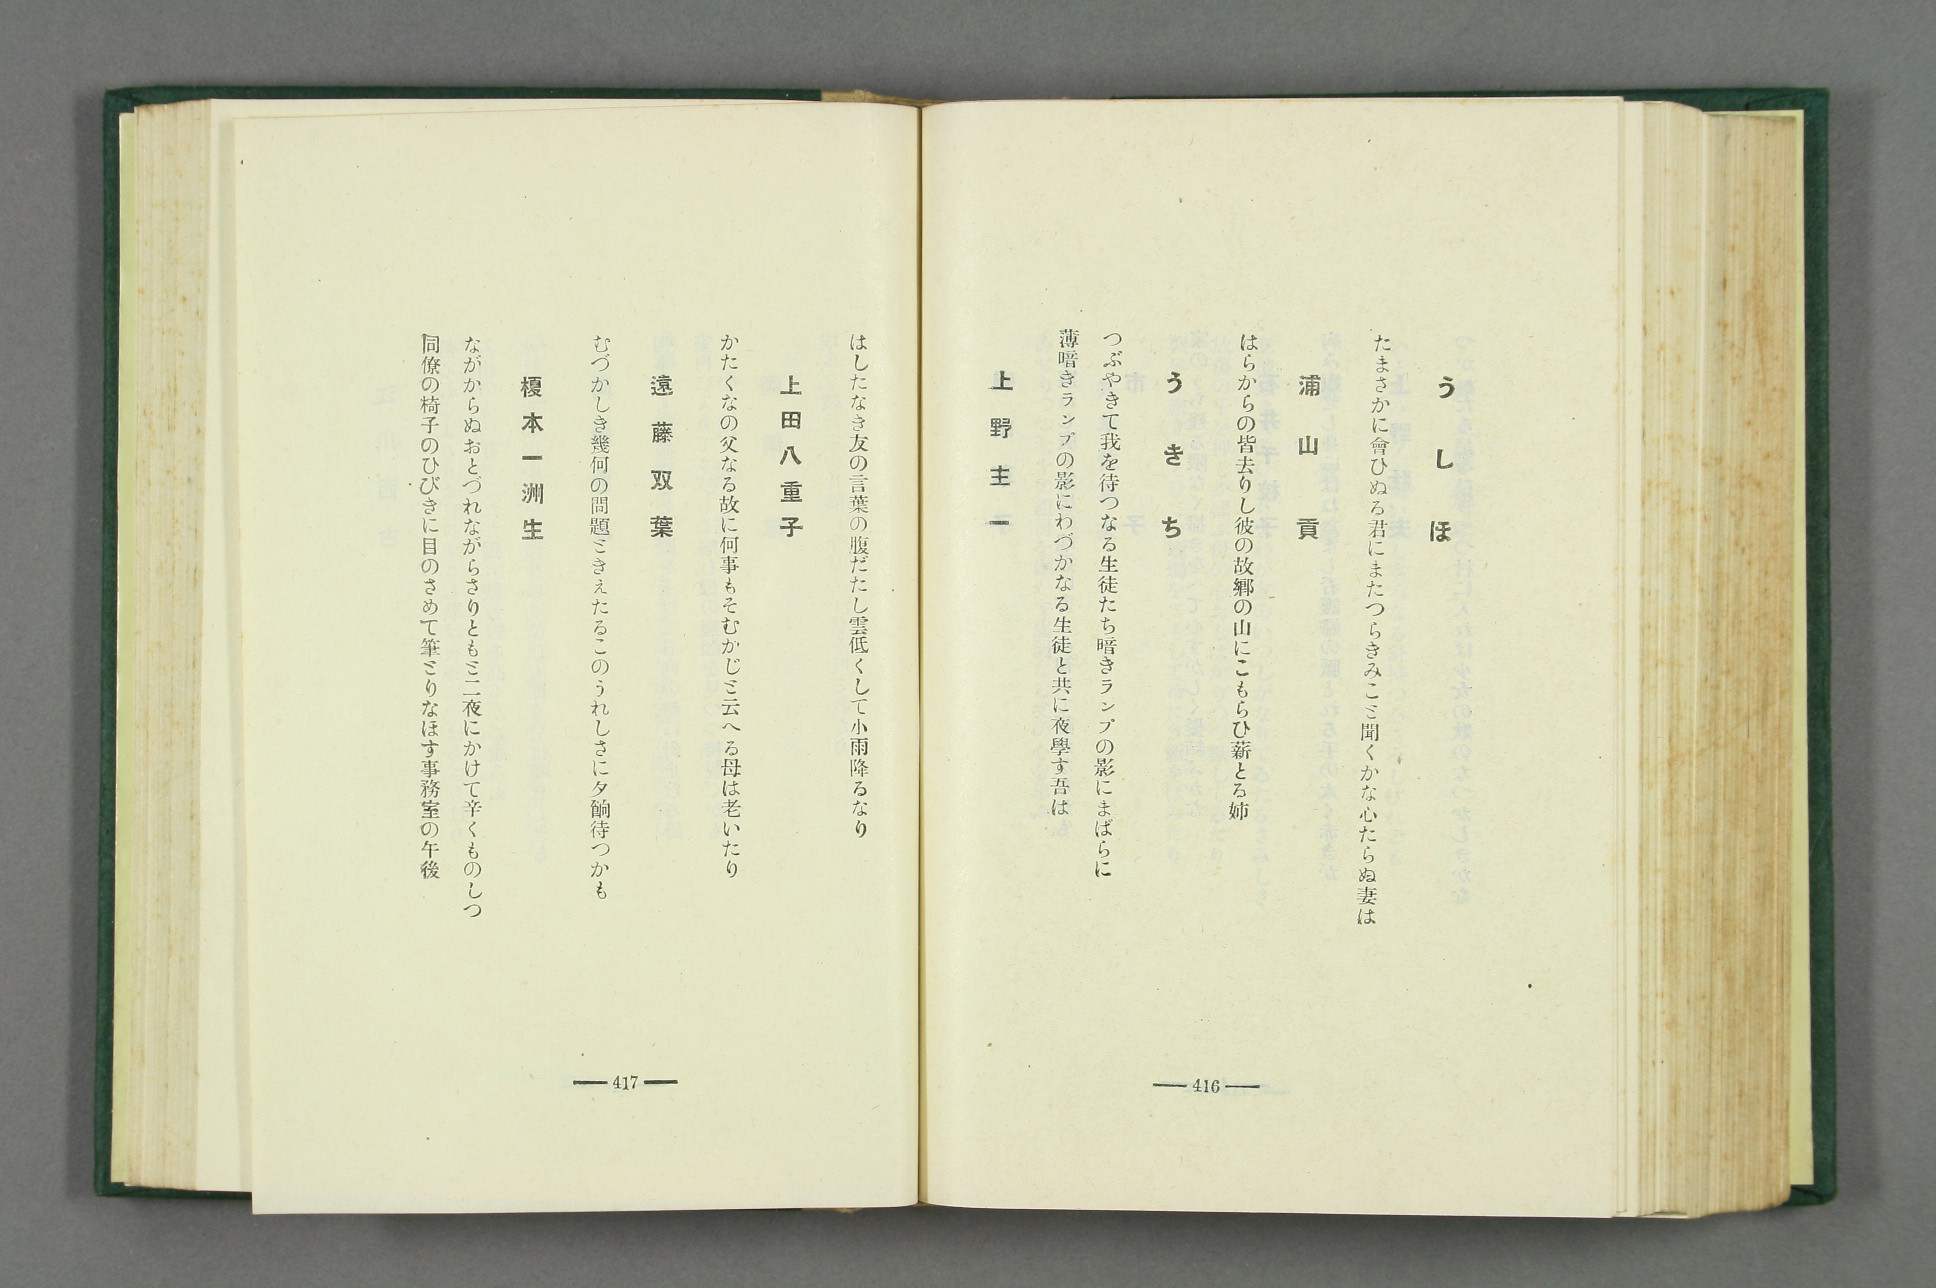 うしほ
たまさかに會ひぬる君にまたつらきみこと聞くかな心たらぬ妻は
浦山貢
はらからの皆去りし彼の故郷の山にこもらひ薪とる姉
うきち
つぶやきて我を待つなる生徒たち暗きランプの影にまばらに
薄暗きランプの影にわづかなる生徒と共に夜學す吾は
上野主一
416
はしたなき友の言葉の腹だたし雲低くして小雨降るなり
上田八重子
かたくなの父なる故に何事もそむかじと云へる母は老いたり
遠藤双葉
むづかしき幾何の問題ときえたるこのうれしさに夕餉待つかも
榎本一洲生
ながからぬおとづれながらさりともと二夜にかけて辛くものしつ
同僚の椅子のひびきに目のさめて筆とりなほす事務室の午後
417